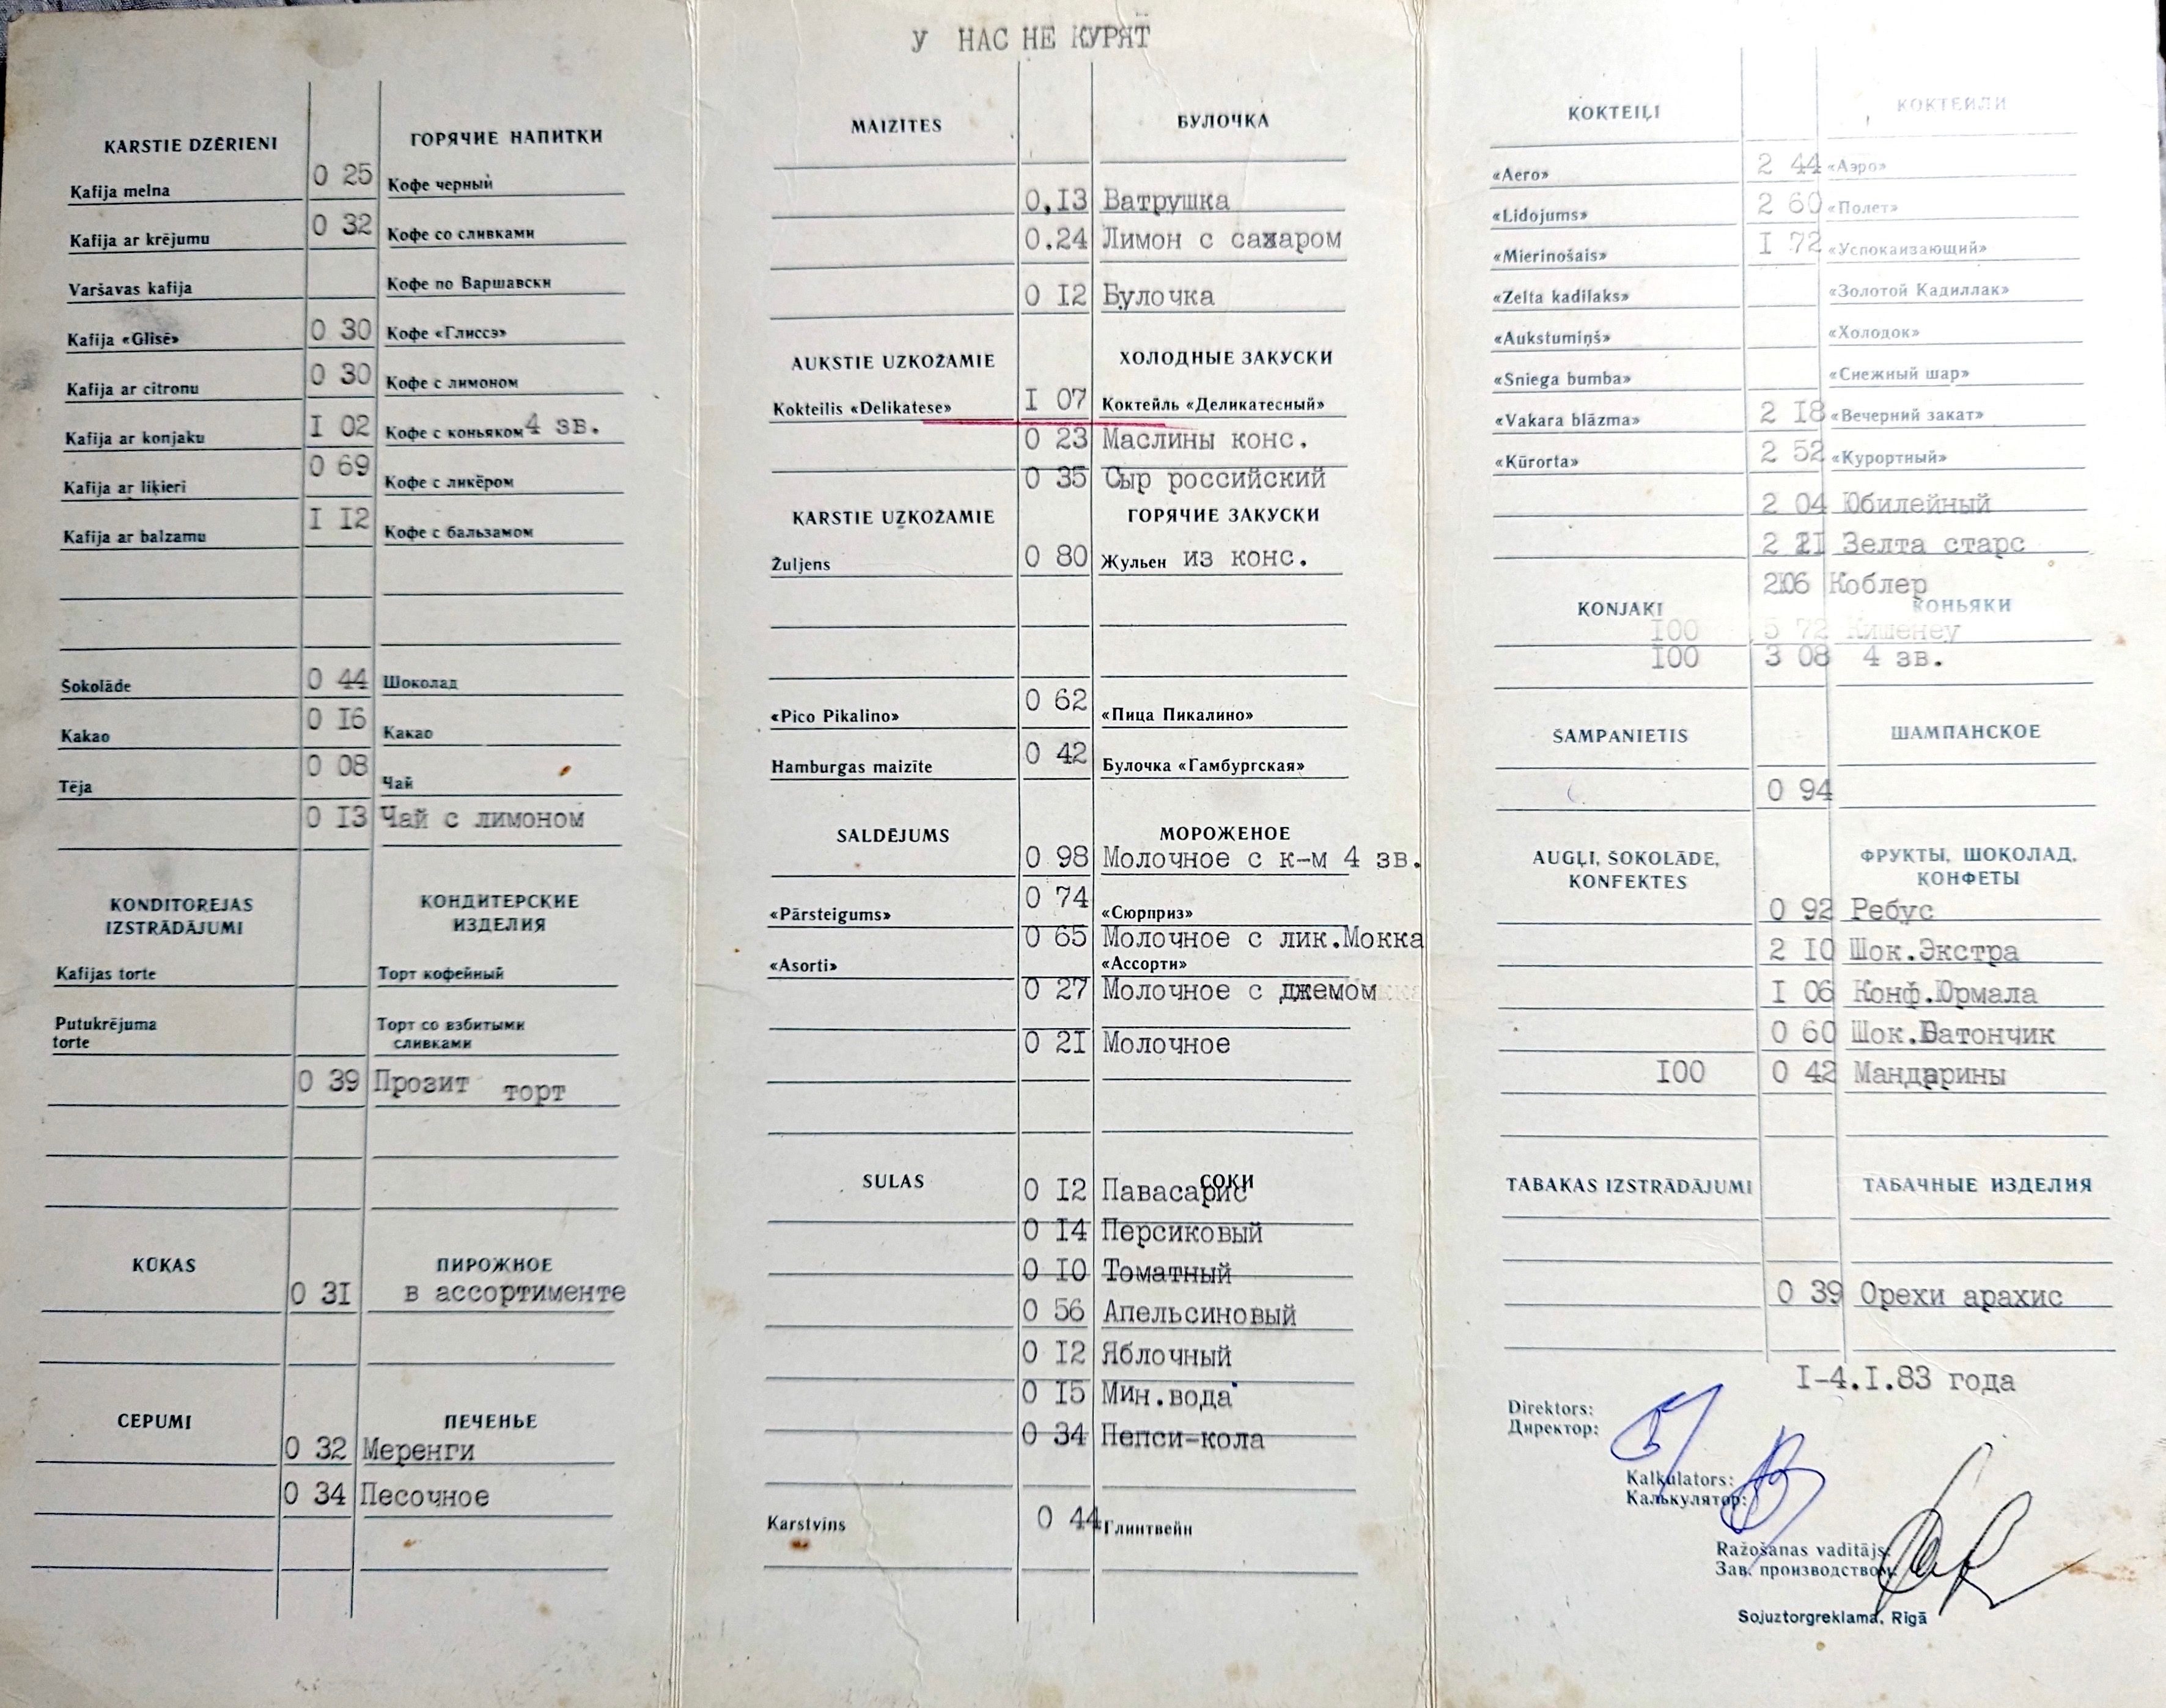 У НАС НЕ КУРЯТ
KARSTIE DZĒRIENI ГОРЯЧИЕ НАПИТКИ
Kafija melna 0 25 Кофе черный
Kafija ar krējumu 0 32 Кофе со сливками
Varšavas kafija Кофе по Варшавски
Kafija «Glisē» 0 30 Кофе «Глиссэ»
Kafija ar citronu 0 30 Кофе с лимоном
Kafija ar konjaku I 02 Кофе с коньяком 4 зв.
Kafija ar liķieri 0 69 Кофе с ликёром
Kafija ar balzamu I I2 Кофе с бальзамом
Šokolāde 0 44 Шоколад
Kakao 0 I6 Какао
Tēja 0 08 Чай
0 I3 Чай с лимоном
KONDITOREJAS КОНДИТЕРСКИЕ
IZSTRĀDĀJUMI ИЗДЕЛИЯ
Kafijas torte Торт кофейный
Putukrējuma Торт со взбитыми
torte сливками
0 39 Прозит торт
KŪKAS ПИРОЖНОЕ
0 3I в ассортименте
CEPUMI ПЕЧЕНЬЕ
0 32 Меренги
0 34 Песочное
MAIZITES БУЛОЧКА
0,I3 Ватрушка
0.24 Лимон с сахаром
0 I2 Булочка
AUKSTIE UZKOŽAMIE ХОЛОДНЫЕ ЗАКУСКИ
Kokteilis «Delikatese» I 07 Коктейль «Деликатесный»
0 23 Маслины конс.
0 35 Сыр российский
KARSTIE UZKOŽAMIE ГОРЯЧИЕ ЗАКУСКИ
Žuljens 0 80 Жульен из конс.
«Pico Pikalino» 0 62 «Пица Пикалино»
Hamburgas maizīte 0 42 Булочка «Гамбургская»
SALDĒJUMS МОРОЖЕНОЕ
0 98 Молочное с к-м 4 зв.
«Pārsteigums» 0 74 «Сюрприз»
0 65 Молочное с лик.Мокка
«Asorti» «Ассорти»
0 27 Молочное с джемом
0 2I Молочное
SULAS СОКИ
0 I2 Павасарис
0 I4 Персиковый
0 I0 Томатный
0 56 Апельсиновый
0 I2 Яблочный
0 I5 Мин.вода
0 34 Пепси-кола
Karstvins 0 44 Глинтвейн
KOKTEIĻI КОКТЕЙЛИ
«Aero» 2 44 «Аэро»
«Lidojums» 2 60 «Полет»
«Mierinošais» I 72 «Успокаизающий»
«Zelta kadilaks» «Золотой Кадиллак»
«Aukstumiņš» «Холодок»
«Sniega bumba» «Снежный шар»
«Vakara blāzma» 2 I8 «Вечерний закат»
«Kūrorta» 2 52 «Курортный»
2 04 Юбилейный
2 2I Зелта старс
2 06 Коблер
KONJAKI КОНЬЯКИ
I00 5 72 Кишенеу
I00 3 08 4 зв.
ŠAMPANIETIS ШАМПАНСКОЕ
0 94
AUGĻI, ŠOKOLĀDE, ФРУКТЫ, ШОКОЛАД,
KONFEKTES КОНФЕТЫ
0 92 Ребус
2 I0 Шок.Экстра
I 06 Конф.Юрмала
0 60 Шок.Батончик
I00 0 42 Мандарины
TABAKAS IZSTRĀDĀJUMI ТАБАЧНЫЕ ИЗДЕЛИЯ
0 39 Орехи арахис
I-4.I.83 года
Direktors:
Директор:
Kalkulators:
Калькулятор:
Ražošanas vadītājs:
Зав. производством:
Sojuztorgreklama, Rīgā